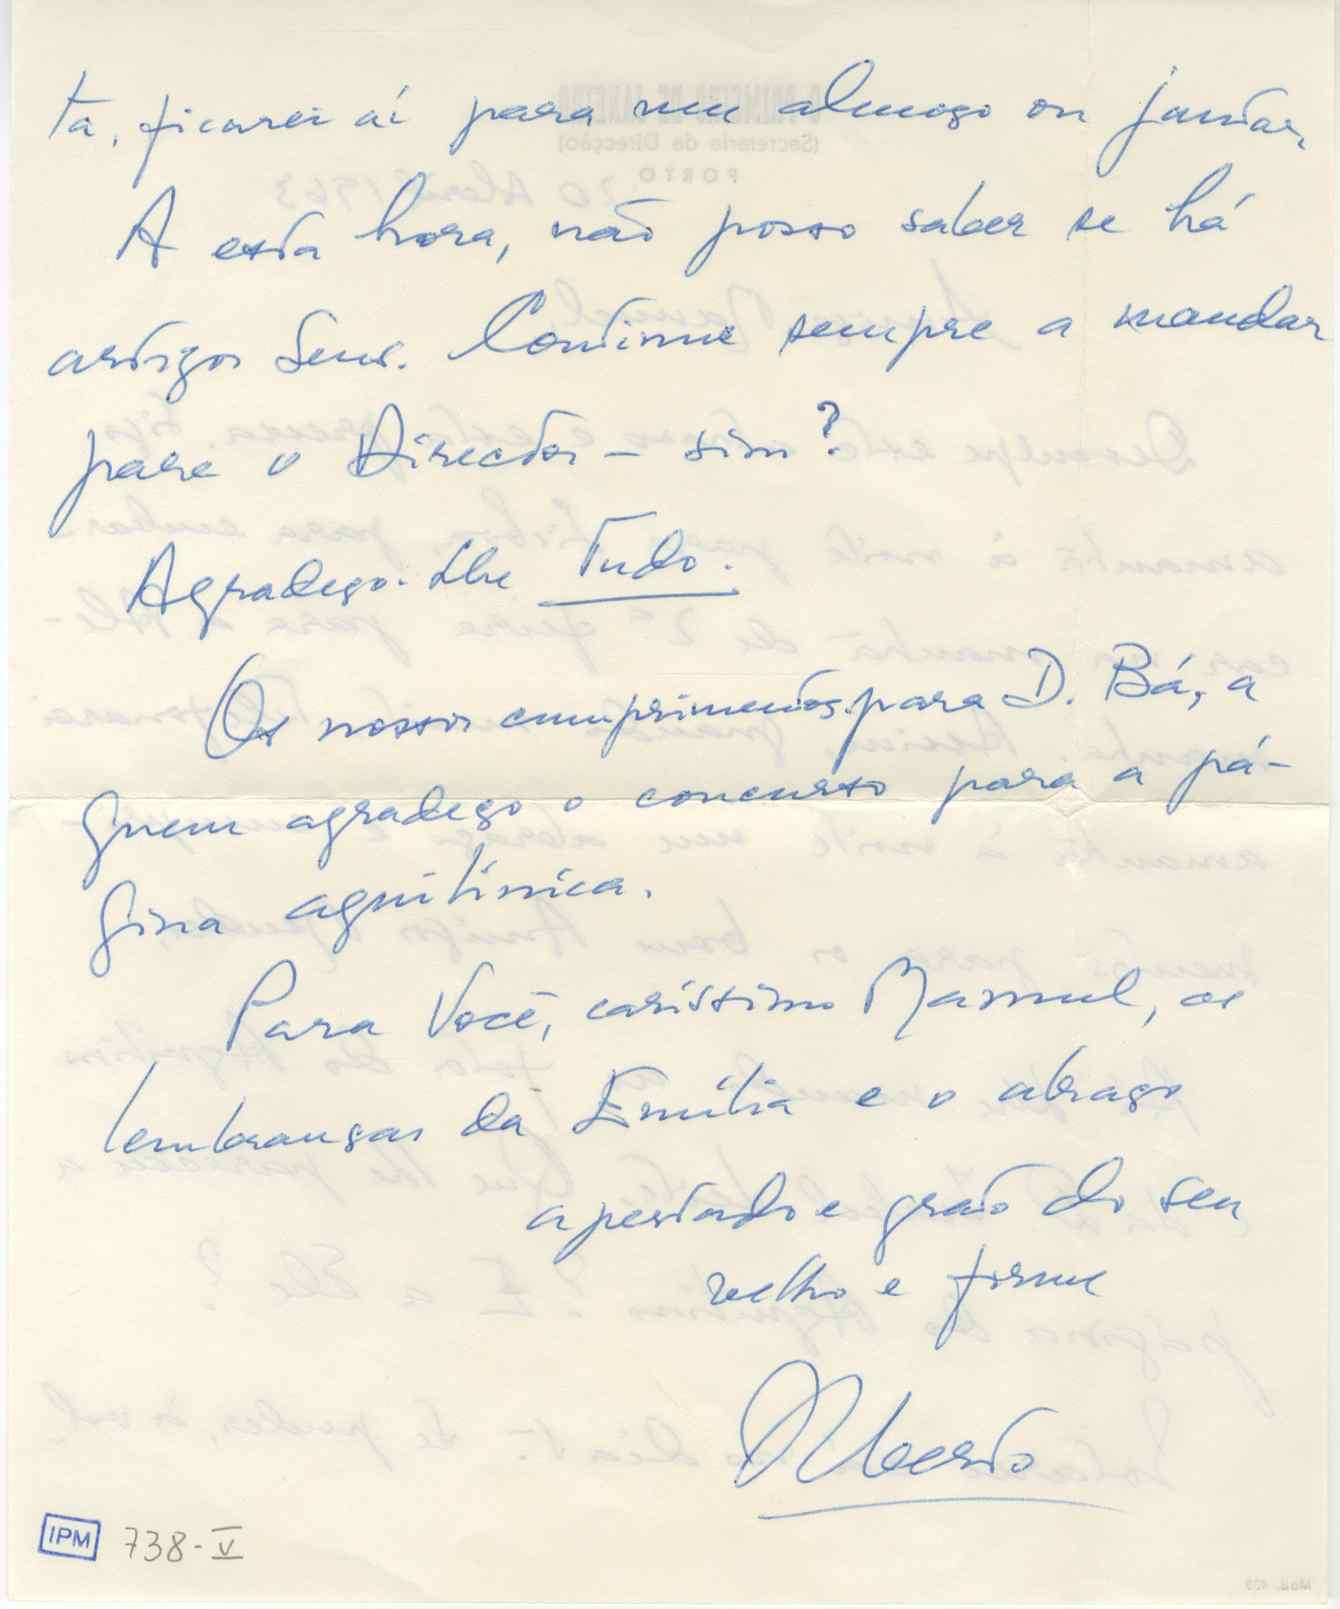 ta, ficarei aí para um almoço ou jantar.
A esta hora, não posso saber se há
artigos Seus. Continue sempre a mandar
para o Director – sim?
Agradeço-lhe Tudo.
Os nossos cumprimentos para D. Bá, a
quem agradeço o concurso para a pá-
gina aquilínica.
Para Você, caríssimo Manuel, as
lembranças da Emília e o abraço
apertado e grato do seu
velho e firme
Alberto
IPM 738-V